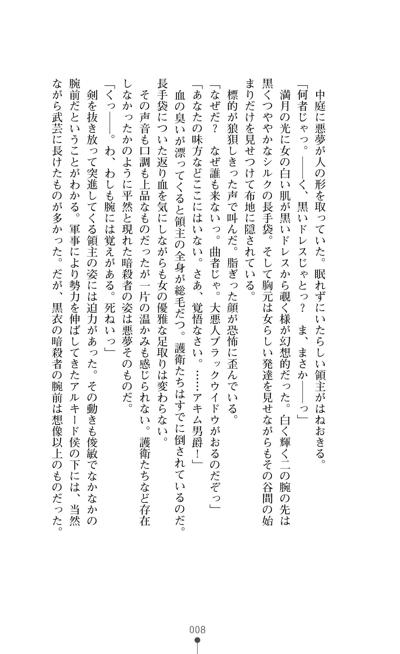 中庭に悪夢が人の形を取っていた。眠れずにいたらしい領主がはねおきる。
「何者じゃっ？――く、黒いドレスじゃとっ？　ま、まさか――っ」
満月の光に女の白い肌が黒いドレスから覗く様が幻想的だった。白く輝く二の腕の先は
黒くつややかなシルクの長手袋。そして胸元は女らしい発達を見せながらもその谷間の始
まりだけを見せつけて布地に隠されている。
標的が狼狽しきった声で叫んだ。脂ぎった顔が恐怖に歪んでいる。
「なぜだ？　なぜ誰も来ないっ。曲者じゃ。大悪人ブラックウイドウがおるのだぞっ」
「あなたの味方などどこにはいない。さあ、覚悟なさい。……アキム男爵！」
血の臭いが漂ってくると領主の全身が総毛だつ。護衛たちはすでに倒されているのだ。
長手袋についた返り血を気にしながらも女の優雅な足取りは変わらない。
その声音も口調も上品なものだったが一片の温かみも感じられない。護衛たちなど存在
しなかったかのように平然と現れた暗殺者の姿は悪夢そのものだ。
「くっ――。わ、わしも腕には覚えがある。死ねいっ」
剣を抜き放って突進してくる領主の姿には迫力があった。その動きも俊敏でなかなかの
腕前だということがわかる。軍事により勢力を伸ばしてきたアルキード侯の下には、当然
ながら武芸に長けたものが多かった。だが、黒衣の暗殺者の腕前は想像以上のものだった。
008